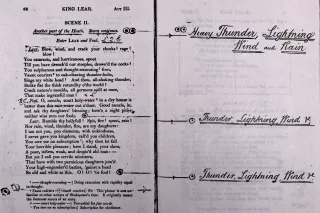 66 KING LEAR. ACT III.
SCENE II.
Another part of the Heath. Storm continues.
Enter LEAR and Fool.
Lear. Blow, wind, and crack your cheeks! rage! blow!
You cataracts, and hurricanoes, spout
Till you have drench'd our steeples, drown'd the cocks!
You sulphurous and thought-executing fires,
Vaunt couriers to oak-cleaving thunder-bolts,
Singe my white head! And thou, all-shaking thunder,
Strike flat the thick rotundity o' the world!
Crack nature's moulds, all germens spill at once,
That make ingrateful man!
Fool. O, nuncle, court holy-water in a dry house is
better than this rain-water out o' door. Good nuncle, in,
and ask thy daughters' blessing: here's a night pities
neither wise men nor fools.
Lear. Rumble thy bellyful! Spit, fire! spout, rain!
Nor rain, wind, thunder, fire, are my daughters:
I tax not you, you elements, with unkindness,
I never gave you kingdom, call'd you children,
You owe me no subscription; why then let fall
Your horrible pleasure; here I stand, your slave,
A poor, infirm, weak, and despis'd old man:—
But yet I call you servile ministers,
That have with two pernicious daughters join'd
Your high-engender'd battles, 'gainst a head
So old and white as this. O! O! 'tis foul!
Heavy Thunder, Lightning
Wind and Rain
Thunder Lightning, Wind &.
Thunder, Lightning, Wind &.